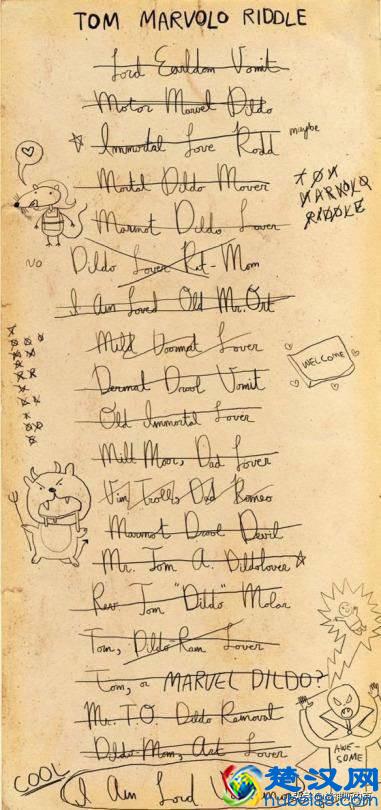 TOM MARVOLO RIDDLE
Lord Earldom Vomit
Motor Marvel Dildo
Immortal Love Rodd
maybe
Mortal Dildo Mover
TOM
MARVOLO
RIDDLE
Marmot Dildo Lover
NO
Dildo Lover Rat-Mom
I Am Loved Old Mr. Ort
Mild Doormat Lover
WELCOME
Dermal Drool Vomit
Old Immortal Lover
Milt Moor, Dad Lover
Vim Troll, Dad Romeo
Marmot Drool Devil
Mr. Tom A. Dildolover
Rev Tom "Dildo" Molar
Tom, Dildo-Ram Lover
Tom, or MARVEL DILDO?
Mr. T.O. Dildo Removal
Dildo-Mom, Art Lover
AWE-
SOME
COOL
I Am Lord
楚汉网
hubei88.com